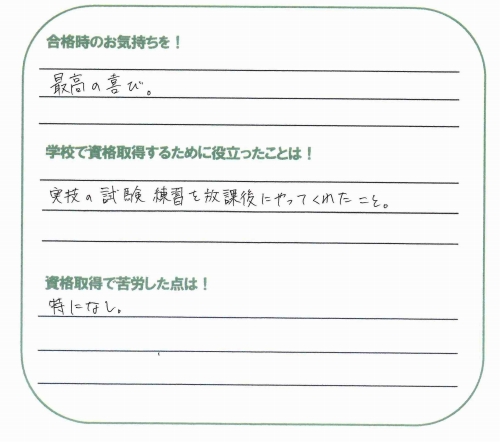 合格時のお気持ちを！
最高の喜び。
学校で資格取得するために役立ったことは！
実技の試験練習を放課後にやってくれたこと。
資格取得で苦労した点は！
特になし。